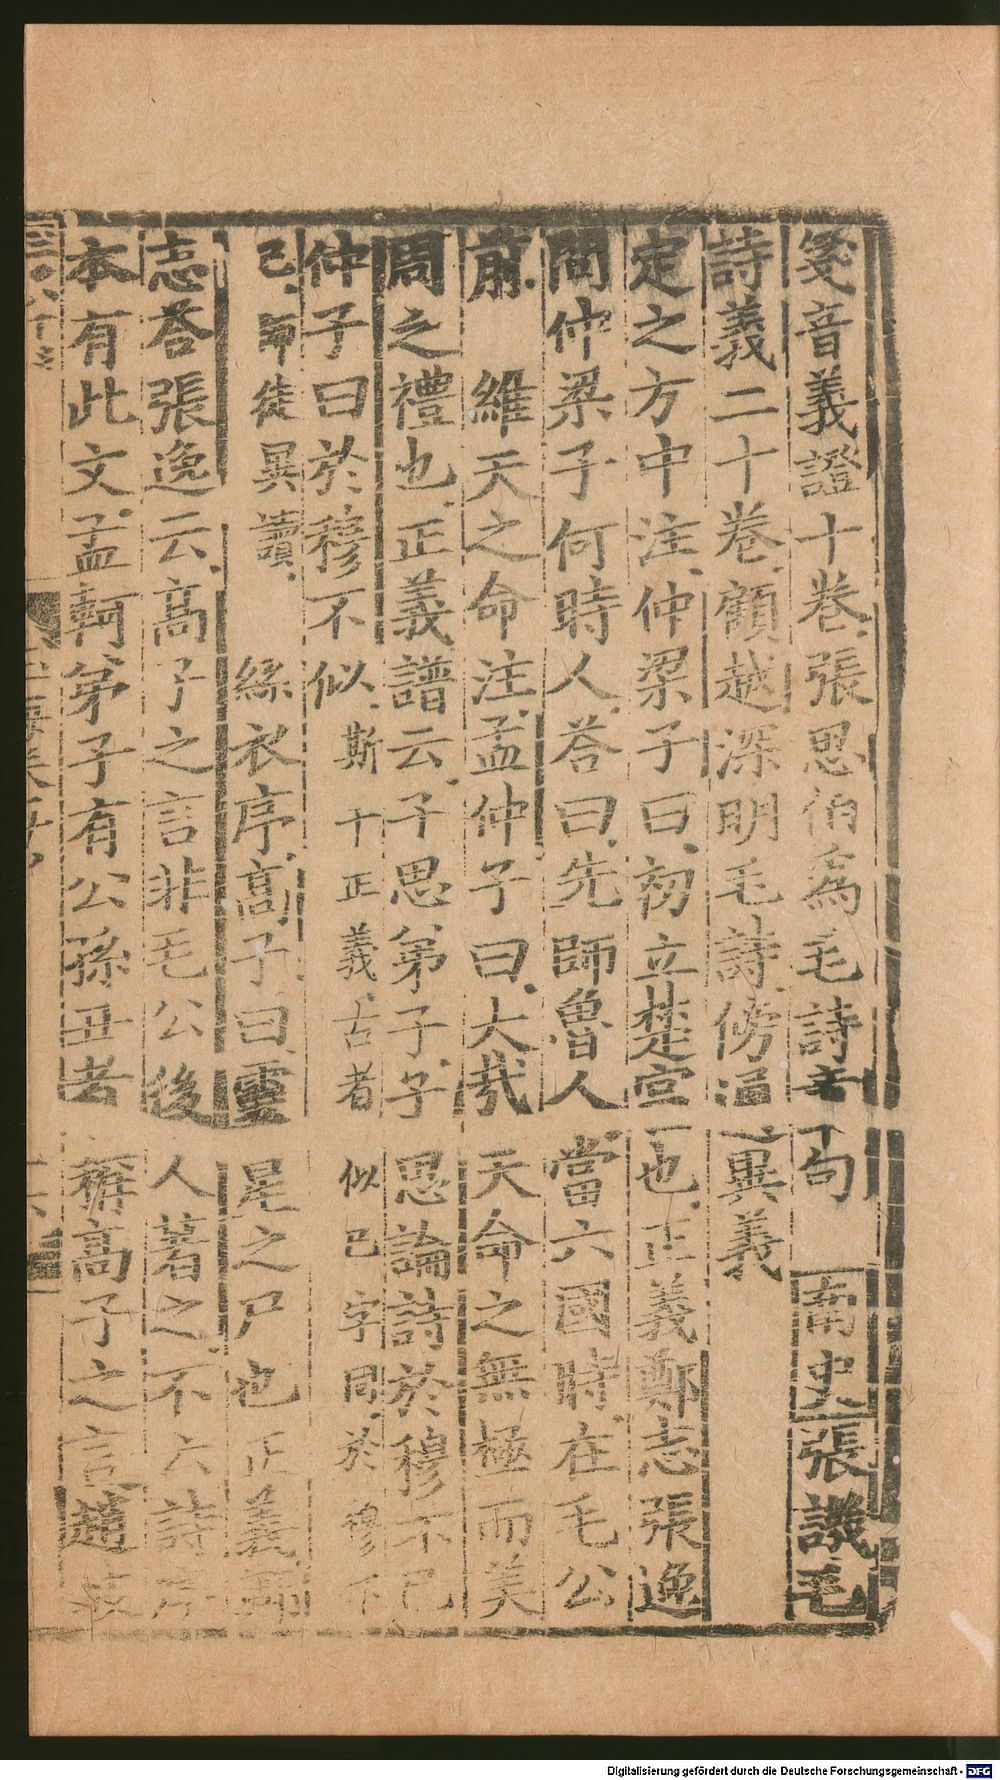 箋音義證十卷張思伯爲毛詩章句 南史張譏毛
詩義二十卷顧越深明毛詩傍通異義
定之方中注仲梁子曰初立楚宮也正義鄭志張逸
問仲梁子何時人荅曰先師魯人當六國時在毛公
前 維天之命注孟仲子曰大哉天命之無極而美
周之禮也正義譜云子思弟子子思論詩於穆不已
仲子曰於穆不似斯干正義古者似巳字同於穆不
已師徒異讀 絲衣序高子曰靈星之尸也正義鄭
志荅張逸云高子之言非毛公後人著之不六詩序
本有此文孟軻弟子有公孫丑者稱高子之言趙岐
Digitalisierung gefördert durch die Deutsche Forschungsgemeinschaft - DFG